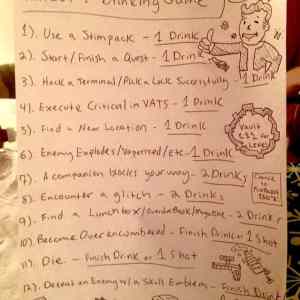 Drinking Game
1). Use a Stimpack - 1 Drink
2). Start/Finish a Quest - 1 Drink
3). Hack a Terminal/Pick a Lock Successfully - 1 Drink
4). Execute Critical in VATS - 1 Drink
5). Find a New Location - 1 Drink
6). Enemy Explodes/Vaporized/etc - 1 Drink
7). A companion blocks your way - 2 Drinks
8). Encounter a glitch - 2 Drinks
9). Find a Lunchbox/Overdue Book/Magazine - 2 Drinks
10). Become Over encumbered - Finish Drink or 1 Shot
11). Die - Finish Drink or 1 Shot
12). Defeat an Enemy w/ a Skull Emblem - Finish Drink
Vault
Level